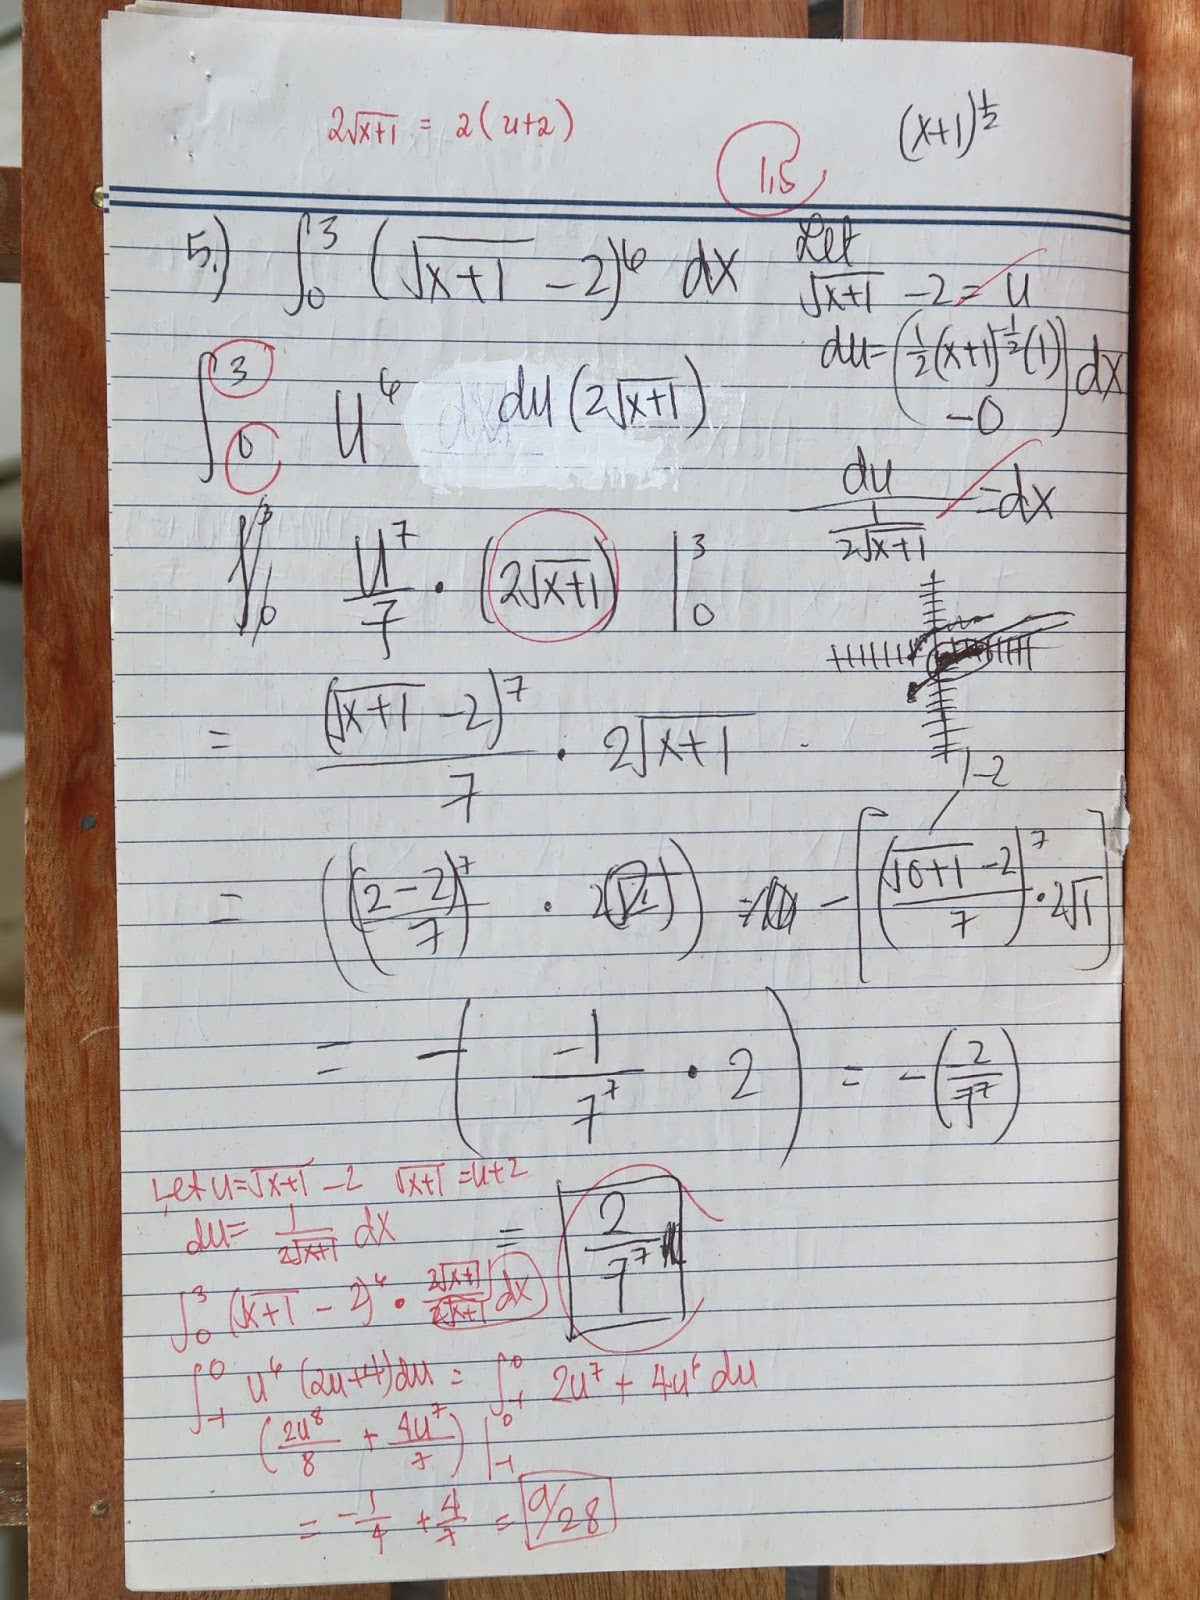 2√(x+1) = 2(u+2)
(x+1)^½
1,5
5.) ∫₀³ (√(x+1) -2)⁶ dx
Let
√(x+1) -2 = u
du = (½(x+1)^-½ (1) -0) dx
∫₀³ u⁶ du (2√(x+1))
du/(1/(2√(x+1))) = dx
u⁷/7 · (2√(x+1)) |₀³
= (√(x+1) -2)⁷/7 · 2√(x+1)
1-2
= (((2-2)/7)⁷ · 2 ) - [((√(0+1) -2)/7)⁷ · 2√1]
= -(-1/7⁷ · 2) = -(2/7⁷)
= 2/7⁷
Let u = √(x+1) -2 √(x+1) = u+2
du = 1/(2√(x+1)) dx
∫₀³ (√(x+1) - 2)⁶ · 2√(x+1)/2√(x+1) dx
∫₋₁⁰ u⁶ (2u+4)du = ∫₋₁⁰ 2u⁷ + 4u⁶ du
(2u⁸/8 + 4u⁷/7) |₋₁⁰
= -1/4 + 4/7 = 9/28